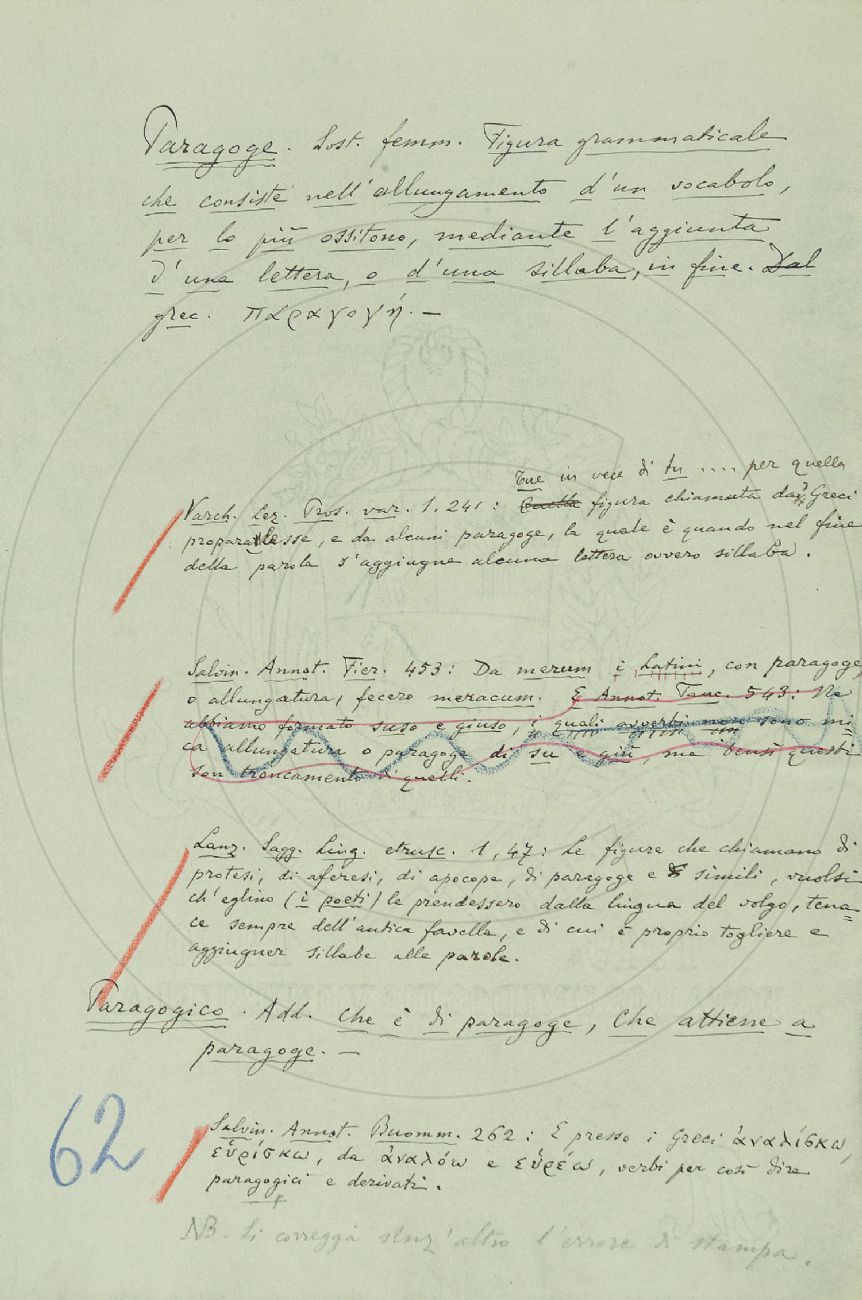 Paragoge. Sost. femm. Figura grammaticale
che consiste nell'allungamento d'un vocabolo,
per lo più ossitono, mediante l'aggiunta
d'una lettera, o d'una sillaba, in fine. Dal
grec. παραγογή. —
Tue in vece di tu .... per quella
Varch. Lez. Pros. var. 1. 241: Quella figura chiamata da' Greci
proparalesse, e da alcuni paragoge, la quale è quando nel fine
della parola s'aggiugne alcuna lettera ovvero sillaba.
Salvin. Annot. Fier. 453: Da merum i Latini, con paragoge,
o allungatura, fecero meracum. E Annot. Tanc. 543: Ne
abbiamo formato suso e giuso, i quali avverbi non sono mi=
ca allungatura o paragoge di su e giù, ma bensì questi
son troncamento di quelli.
Lanz. Sagg. Ling. etrusc. 1, 47: Le figure che chiamano di
protesi, di aferesi, di apocope, di paragoge e simili, vuolsi
ch'eglino (i poeti) le prendessero dalla lingua del volgo, tena=
ce sempre dell'antica favella, e di cui è proprio togliere e
aggiugner sillabe alle parole.
Paragogico. Add. Che è di paragoge, Che attiene a
paragoge. —
62
Salvin. Annot. Buomm. 262: E presso i Greci ἀναλίσκω,
εὑρίσκω, da ἀναλόω e εὑρέω, verbi per così dire
paragogici e derivati.
NB. Si corregga senz'altro l'errore di stampa.